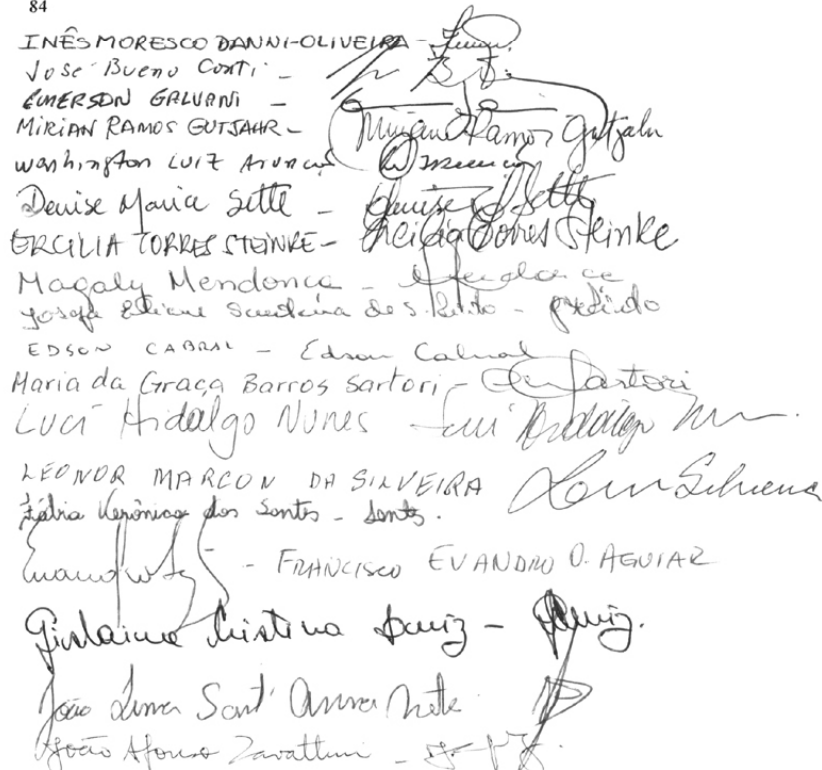 84
INÊS MORESCO DANNI-OLIVEIRA -
José Bueno Conti -
EMERSON GALVANI -
MIRIAN RAMOS GUTJAHR - Miriam Ramos Gutjahr
Washington LUIZ
Denise Maria Sette - Denise M Sette
ERCÍLIA TORRES STEINKE - Ercília Torres Steinke
Magaly Mendonça -
Josefa Eliane Santana de S.
EDSON CABRAL - Edson Cabral
Maria da Graça Barros Sartori - Sartori
Luci Hidalgo Nunes - Luci Hidalgo
LEONOR MARCON DA SILVEIRA
Verônica dos Santos - Santos.
- FRANCISCO EVANDRO O. AGUIAR
Gislaine Cristina Luiz - Luiz.
João Lima Sant'Anna Neto
João Afonso Zavattini -